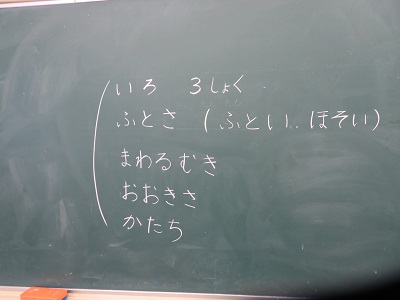 いろ 3しょく
ふとさ (ふとい.ほそい)
まわるむき
おおきさ
かたち